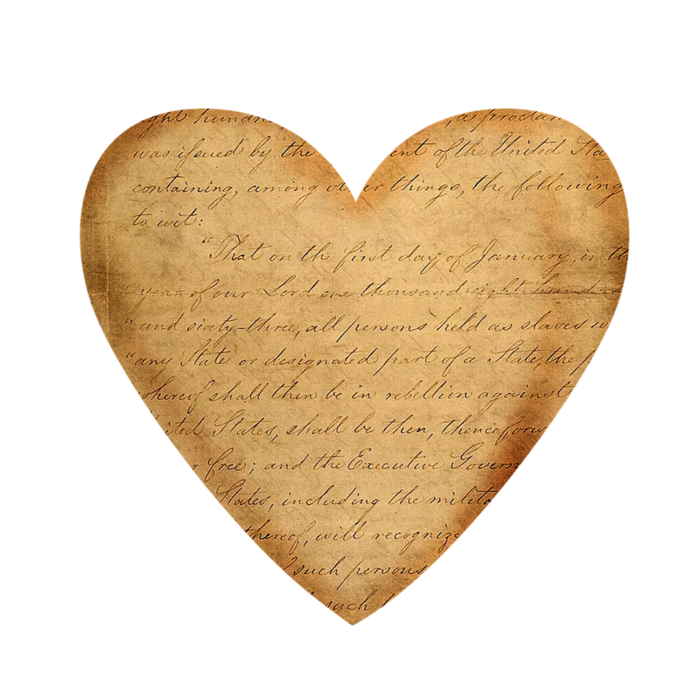 ght hundr
, a proclam
was issued by the ent of the United Sta
containing, among other things, the following
to wit:
"That on the first day of January, in th
"year of our Lord one thousand eight hundred
"and sixty-three, all persons held as slaves w
"any State or designated part of a State, the p
whereof shall then be in rebellion against
United States, shall be then, thenceforw
r free; and the Executive Govern
States, including the milita
thereof, will recognize
such persons
such